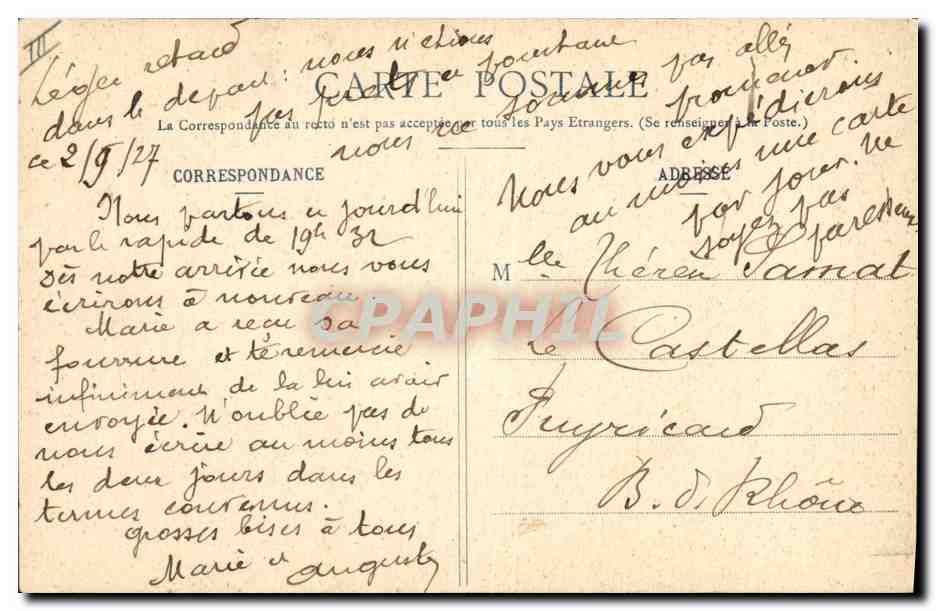 III
Léger retard
dans le depart : nous n'étions
pas prets en pourtant
nous ne sommes pas allés
promener.
Nous vous expédierons
au moins une carte
par jour. Ne
soyez pas
paresseux
CARTE POSTALE
La Correspondance au recto n'est pas acceptée par tous les Pays Etrangers. (Se renseigner à la Poste.)
ce 2/9/27
CORRESPONDANCE
Nous partons aujourd'hui
par le rapide de 19h 32
Dès notre arrivée nous vous
écrirons à nouveau.
Marie a reçu sa
fourrure et te remercie
infiniment de la lui avoir
envoyée. N'oublie pas de
nous écrire au moins tous
les deux jours dans les
termes convenus.
Grosses bises à tous
Marie et Auguste
ADRESSE
Mlle Samat
Le Castellas
Puyricard
B. d. Rhône
CPAPHIL